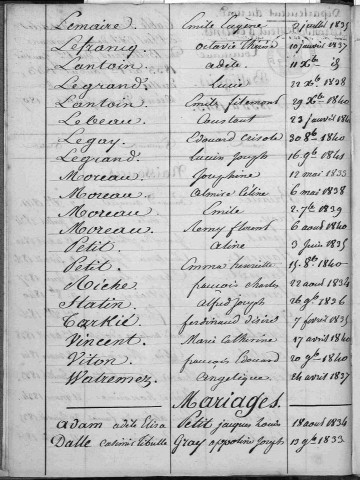 Lemaire. Emile Eugène 9 juillet 1835
Lefrancq. octavie Thérèse 10 janvier 1837
Lantoin. adèle 11 Xbre id
Legrand. Lucie 22 Xbre 1838
Lantoin. Emile filemont 29 Xbre 1840
Lebeau. Constant 23 janvril 1840
Legay. Edouard 30 8bre 1840
Legrand. Lucien Joseph 16 9bre 1841
Moreau. Joséphine 12 mai 1835
Moreau. almire Céline 6 mai 1838
Moreau. Emile 2 7bre 1839
Moreau. Remy florent 6 aout 1840
Petit. aline 3 juin 1835
Petit. Emma henriette 15 8bre 1840
Riche. françois charles 22 aout 1834
Statin. alfred joseph 26 9bre 1836
Tarkié. ferdinand désiré 7 février 1835
Vincent. Marie Catherine 17 avril 1840
Viton. françois Edouard 20 9bre 1840
Watremez. angelique 24 avril 1837
Mariages.
adam adèle Elisa Petit jacques Louis 18 aout 1834
Dalle Casimir Tibulle Gray appoline joseph 13 9bre 1833